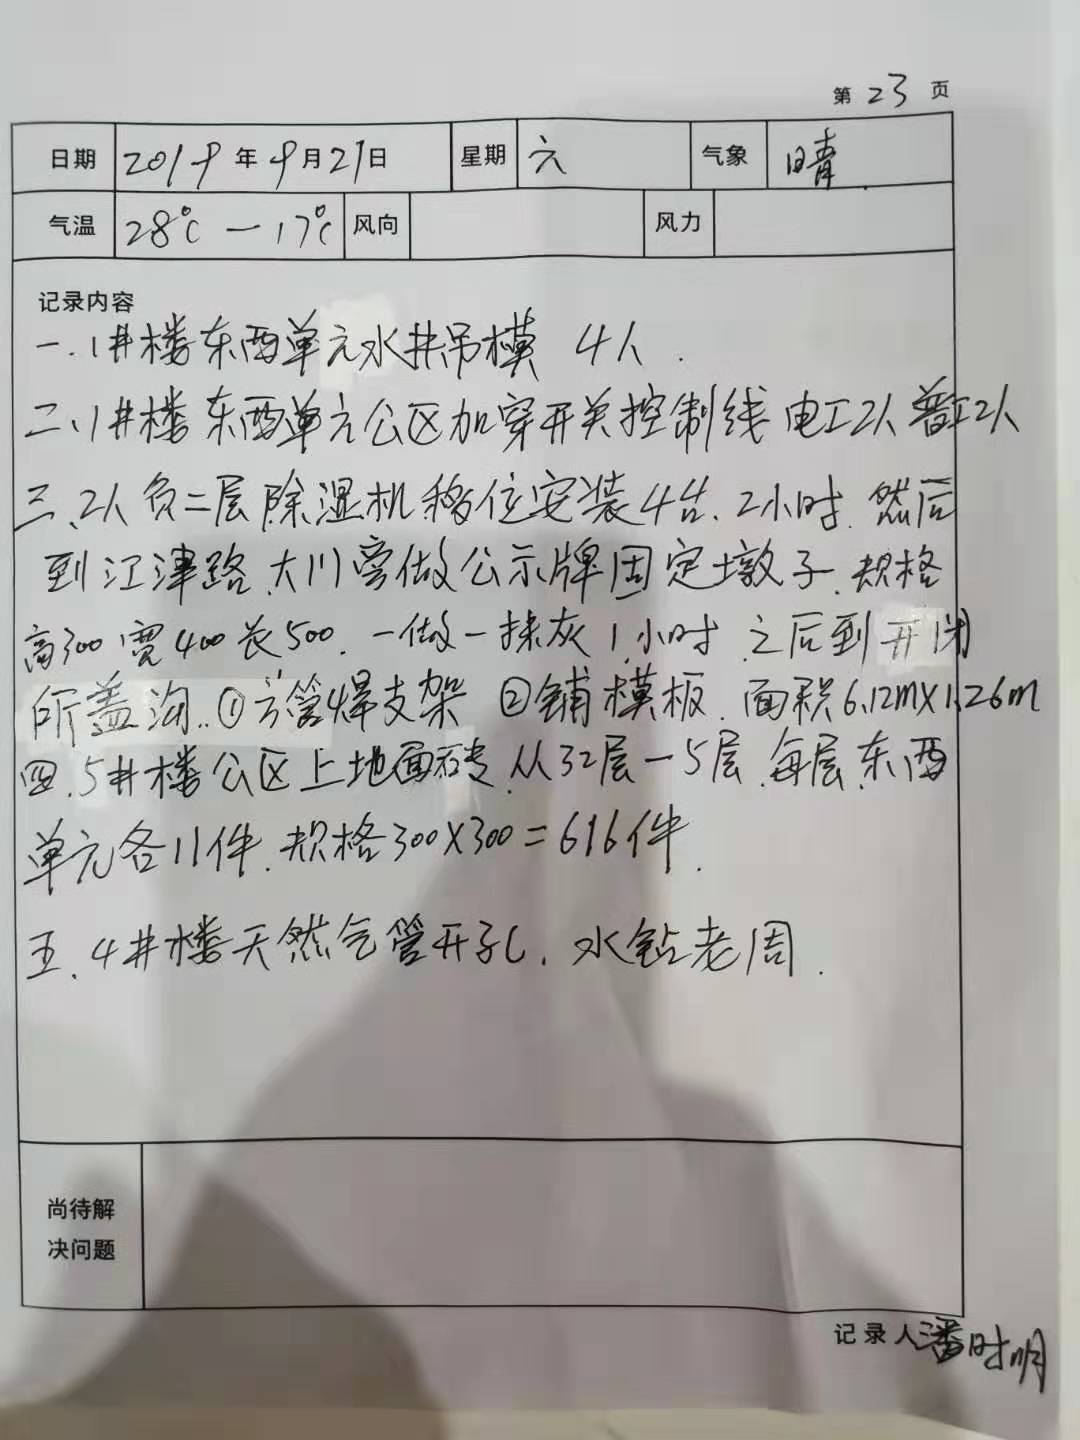 第 23 页
日期 2019 年 9 月 21 日 星期 六 气象 晴
气温 28℃ — 17℃ 风向 风力
记录内容
一.1#楼东西单元水井吊模 4人.
二.1#楼东西单元公区加穿开关控制线 电工2人 普工2人
三、2人负二层除湿机移位安装4台、2小时.然后
到江津路、大川旁做公示牌固定墩子.规格
高300宽400长500.一做一抹灰1小时.之后到开闭
所盖沟..①方管焊支架 ②铺模板.面积6.12m×1.26m
四.5#楼公区上地面砖.从32层—5层.每层.东西
单元各11件.规格300×300=616件.
五.4#楼天然气管开孔.水钻老周.
尚待解
决问题
记录人 潘时明